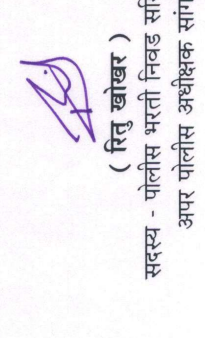 ( रितु खोखर )
सदस्य - पोलीस भरती निवड
अपर पोलीस अधीक्षक